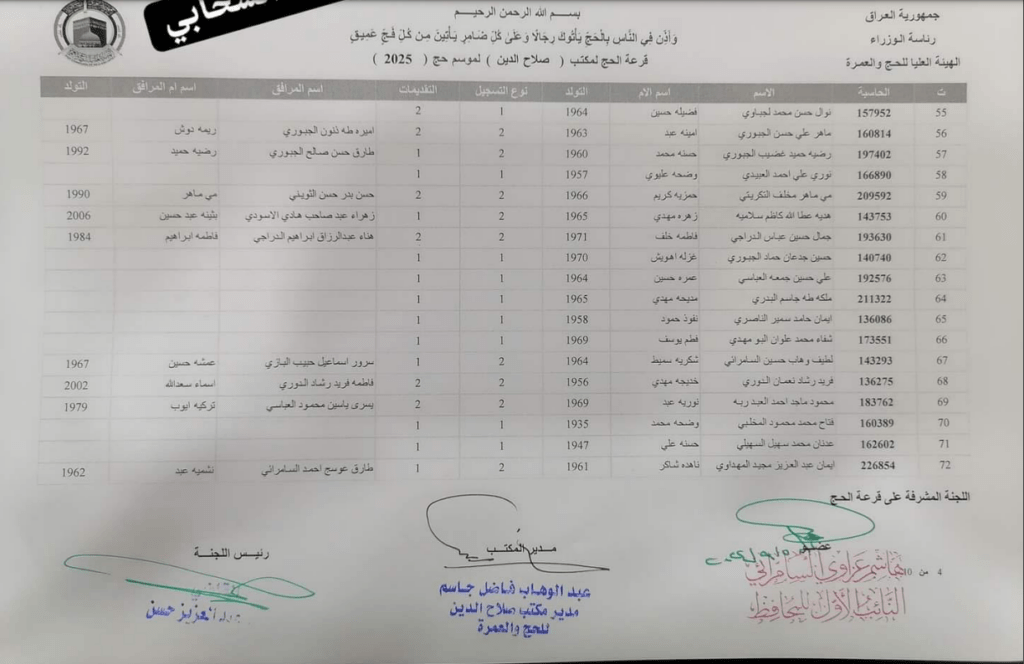 السحابي
جمهورية العراق
رئاسة الوزراء
الهيئة العليا للحج والعمرة
بسم الله الرحمن الرحيم
وَأَذِّن فِي النَّاسِ بِالْحَجِّ يَأْتُوكَ رِجَالًا وَعَلَىٰ كُلِّ ضَامِرٍ يَأْتِينَ مِن كُلِّ فَجٍّ عَمِيقٍ
قرعة الحج لمكتب ( صلاح الدين ) لموسم حج ( 2025 )
ت الحاسبة الاسم اسم الام التولد نوع التسجيل التقديمات اسم المرافق اسم ام المرافق التولد
55 157952 نوال حسن محمد لجباوي فضيله حسين 1964 1 2
56 160814 ماهر علي حسن الجبوري امينه عبد 1963 2 2 اميره طه ذنون الجبوري ريمه دوش 1967
57 197402 رضيه حميد غضيب الجبوري حسنه محمد 1960 2 1 طارق حسن صالح الجبوري رضيه حميد 1992
58 166890 نوري علي احمد العبيدي وضحه عليوي 1957 1 1
59 209592 مي ماهر مخلف التكريتي حمزيه كريم 1966 2 2 حسن بدر حسن التويني مي ماهر 1990
60 143753 هديه عطا الله كاظم سلاميه زهره مهدي 1965 2 1 زهراء عبد صاحب هادي الاسودي بثينه عبد حسين 2006
61 193630 جمال حسين عباس الدراجي فاطمه خلف 1971 2 2 هناء عبدالرزاق ابراهيم الدراجي فاطمه ابراهيم 1984
62 140740 حسين جدعان حماد الجبوري غزله اهويش 1970 1 1
63 192576 علي حسين جمعه العباسي عمره حسين 1964 1 1
64 211322 ملكه طه جاسم البدري مديحه مهدي 1965 1 1
65 136086 ايمان حامد سمير الناصري نفوذ حمود 1958 1 1
66 173551 شفاء محمد علوان البو مهدي فطم يوسف 1969 1 1
67 143293 لطيف وهاب حسين السامرائي شكريه سميط 1964 2 1 سرور اسماعيل حبيب البازي عمشه حسين 1967
68 136275 فريد رشاد نعمان الدوري خديجه مهدي 1956 2 2 فاطمه فريد رشاد الدوري اسماء سعدالله 2002
69 183762 محمود ماجد احمد العبد ربه نوريه عبد 1969 2 2 يسرى ياسين محمود العباسي تركيه ايوب 1979
70 160389 فتاح محمد محمود المخلبي وضحه محمد 1935 1 1
71 162602 عدنان محمد سهيل السهيلي حسنه علي 1947 1 1
72 226854 ايمان عبد العزيز مجيد المهداوي ناهده شاكر 1961 2 1 طارق عوسج احمد السامرائي نشميه عبد 1962
اللجنة المشرفة على قرعة الحج
عضو
مدير المكتب
رئيس اللجنة
هاشم عزاوي السامرائي
النائب الأول للمحافظ
عبد الوهاب فاضل جاسم
مدير مكتب صلاح الدين
للحج والعمرة
عبد العزيز حسن
4 من 10